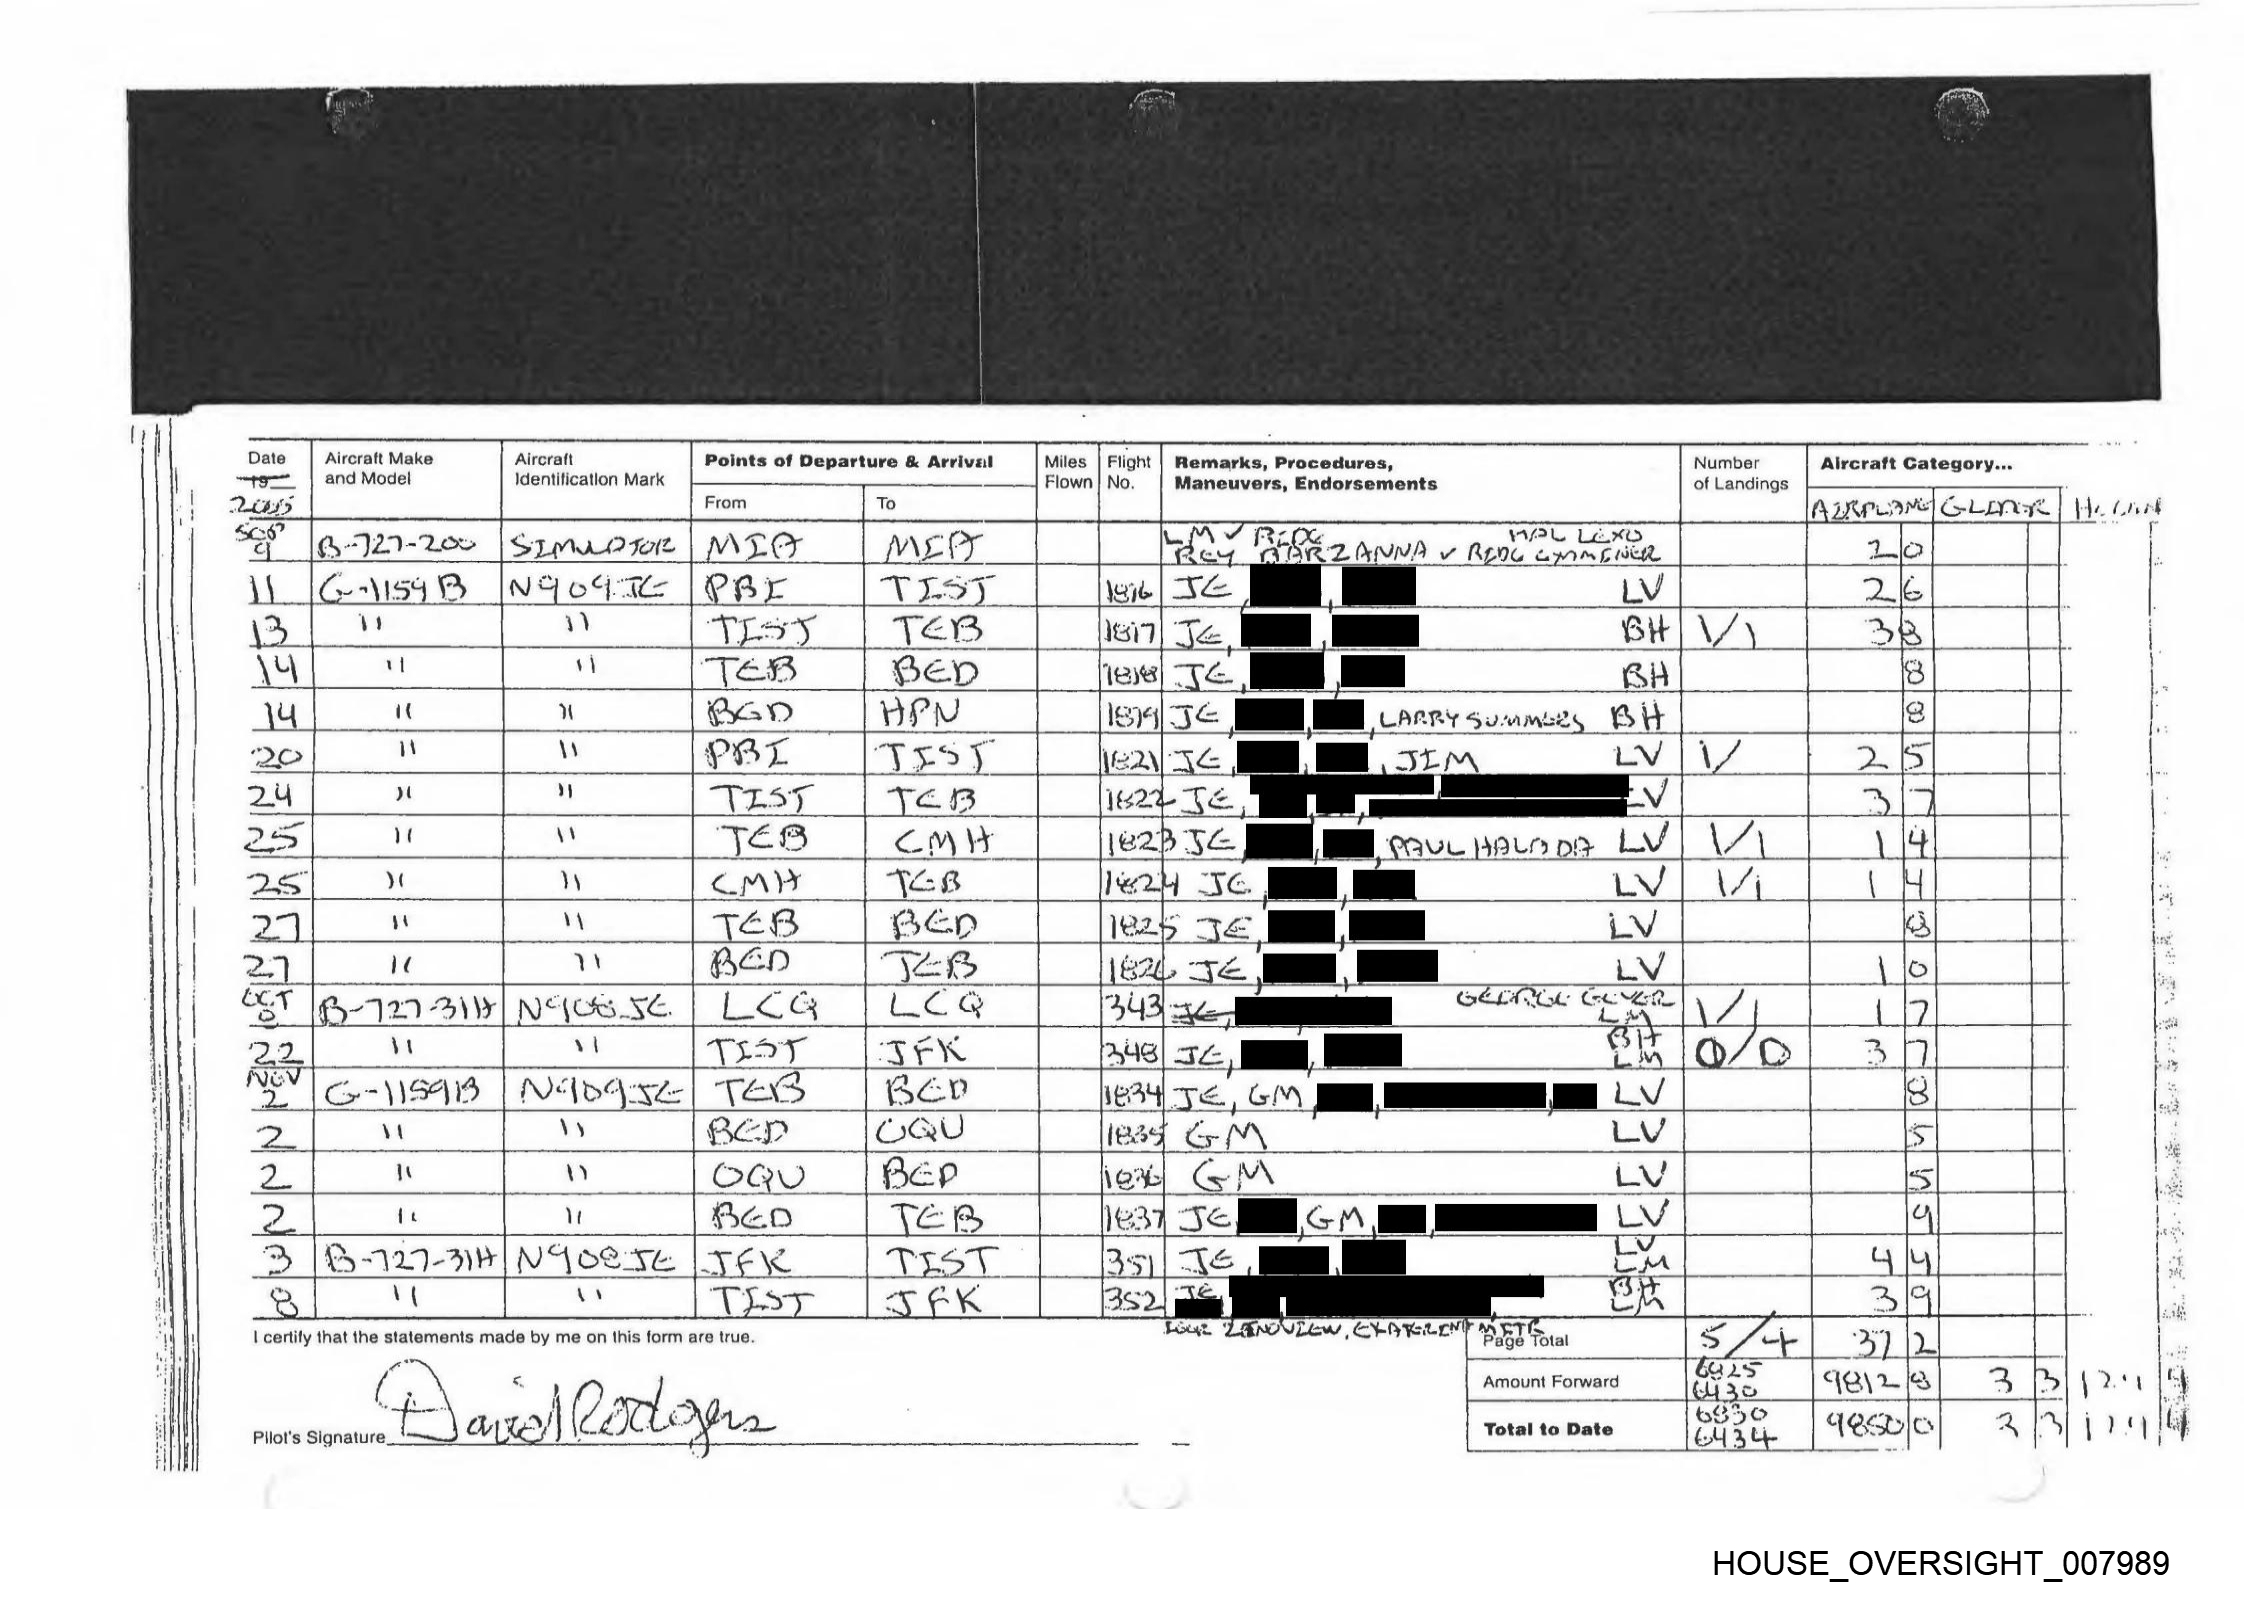 Date Aircraft Make and Model Aircraft Identification Mark Points of Departure & Arrival From To Miles Flown Flight No. Remarks, Procedures, Maneuvers, Endorsements Number of Landings Aircraft Category...
19
2005 AIRPLANE GLIDER
SEP 9 B-727-200 SIMULATOR MIA MIA LM ✓ RIDE REY BARZANNA ✓ RIDE 2 0
11 G-1159B N909JE PBI TIST 1816 JE, , LV 2 6
13 " " TIST TEB 1817 JE, , BH 1/1 3 8
14 " " TEB BED 1818 JE, , BH 8
14 " " BED HPN 1819 JE, , , LARRY SUMMERS BH 8
20 " " PBI TIST 1821 JE, , , JIM LV 1/ 2 5
24 " " TIST TEB 1822 JE, LV 3 7
25 " " TEB CMH 1823 JE, , , PAUL HALADA LV 1/1 1 4
25 " " CMH TEB 1824 JE, , LV 1/1 1 4
27 " " TEB BED 1825 JE, , LV 8
27 " " BED TEB 1826 JE, , LV 1 0
OCT B-727-31H N908JE LCQ LCQ 343 JE, GEORGE LM 1/1 1 7
22 " " TIST JFK 348 JE, , BH LM 0/0 3 7
NOV 2 G-1159B N909JE TEB BED 1834 JE, GM, , , LV 8
2 " " BED OQU 1835 GM LV 5
2 " " OQU BED 1836 GM LV 5
2 " " BED TEB 1837 JE, , GM, , LV 9
3 B-727-31H N908JE JFK TIST 351 JE, , LV LM 4 4
8 " " TIST JFK 352 JE, BH LM 3 9
I certify that the statements made by me on this form are true.
Page Total 5/4 37 2
Amount Forward 6825 6430 9812 8 3 3
Total to Date 6830 6434 9850 0 3 3
Pilot's Signature David Rodgers
HOUSE_OVERSIGHT_007989